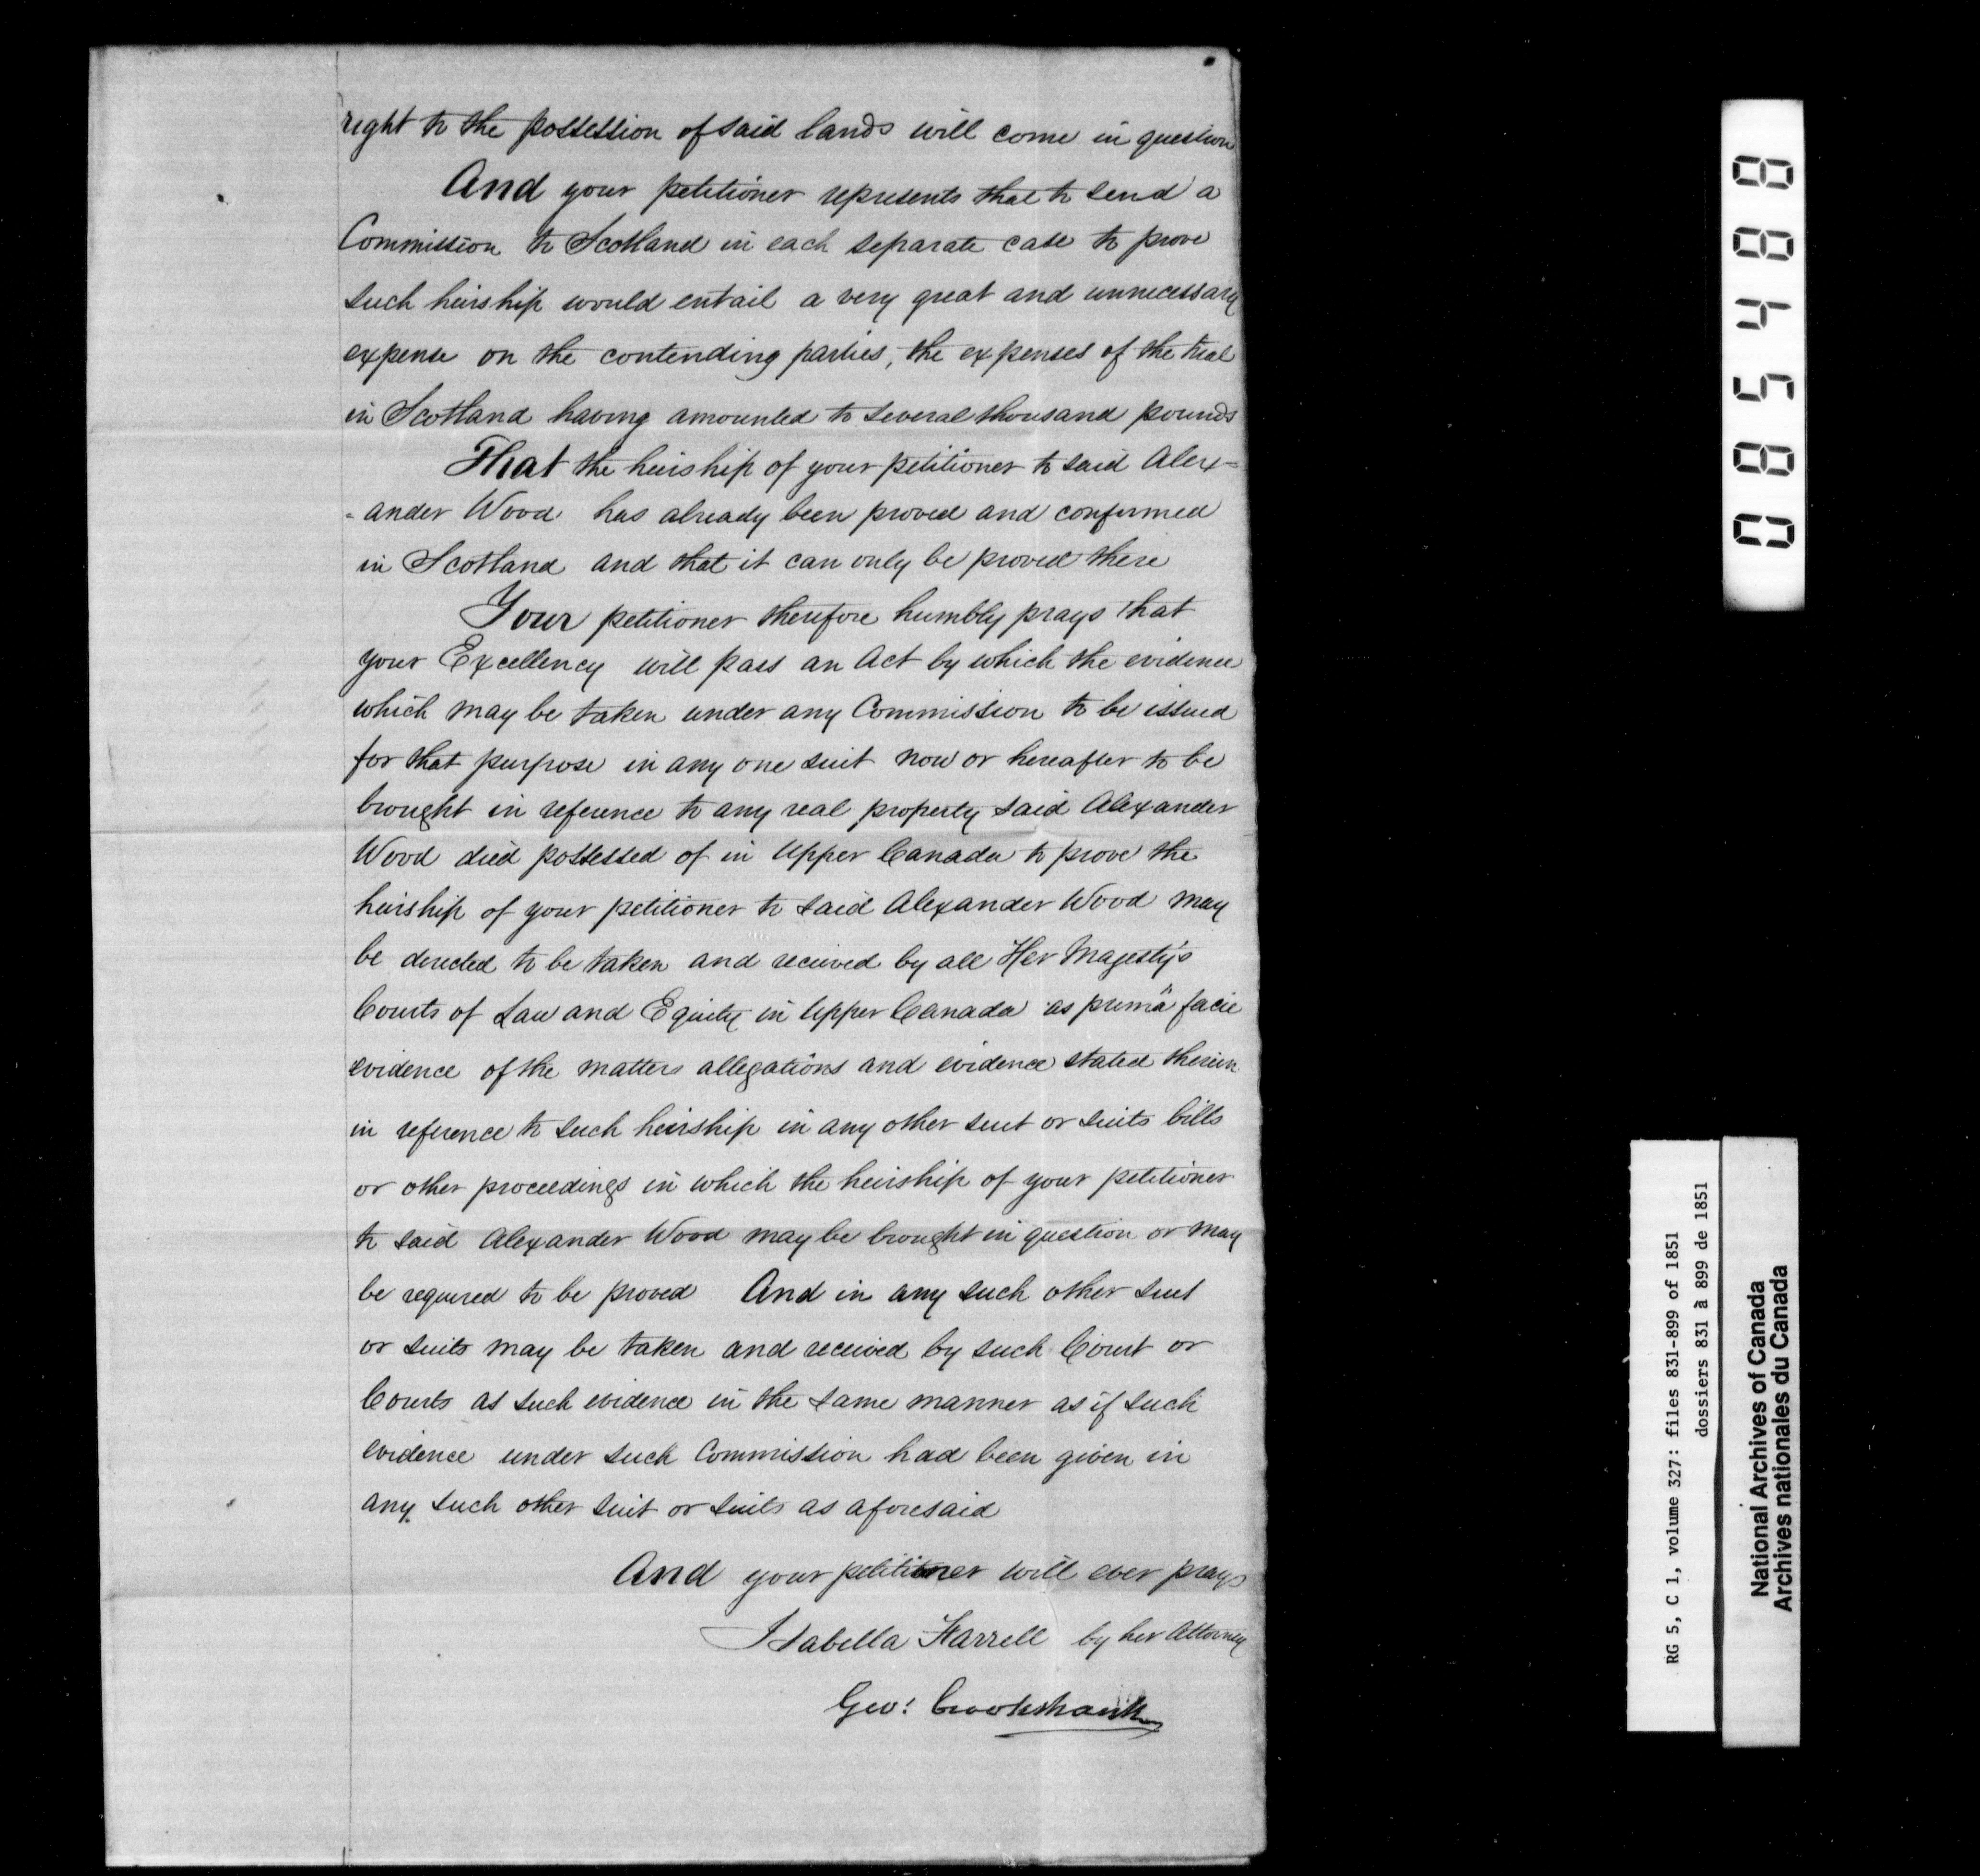 right to the possession of said lands will come in question
And your petitioner represents that to send a
Commission to Scotland in each separate case to prove
such heirship would entail a very great and unnecessary
expense on the contending parties, the expenses of the trial
in Scotland having amounted to several thousand pounds
That the heirship of your petitioner to said Alex=
=ander Wood has already been proved and confirmed
in Scotland and that it can only be proved there
Your petitioner therefore humbly prays that
your Excellency will pass an Act by which the evidence
which may be taken under any Commission to be issued
for that purpose in any one suit now or hereafter to be
brought in reference to any real property said Alexander
Wood died possessed of in Upper Canada to prove the
heirship of your petitioner to said Alexander Wood may
be directed to be taken and received by all Her Magesty's
Courts of Law and Equity in Upper Canada as primâ facie
evidence of the matters allegations and evidence stated therein
in reference to such heirship in any other suit or suits bills
or other proceedings in which the heirship of your petitioner
to said Alexander Wood may be brought in question or may
be required to be proved And in any such other suit
or suits may be taken and received by such Court or
Courts as such evidence in the same manner as if such
evidence under such Commission had been given in
any such other suit or suits as aforesaid
And your petitioner will ever pray
Isabella Farrell by her Attorney
Geo: Crookshank
085488
RG 5, C 1, volume 327: files 831-899 of 1851
dossiers 831 à 899 de 1851
National Archives of Canada
Archives nationales du Canada